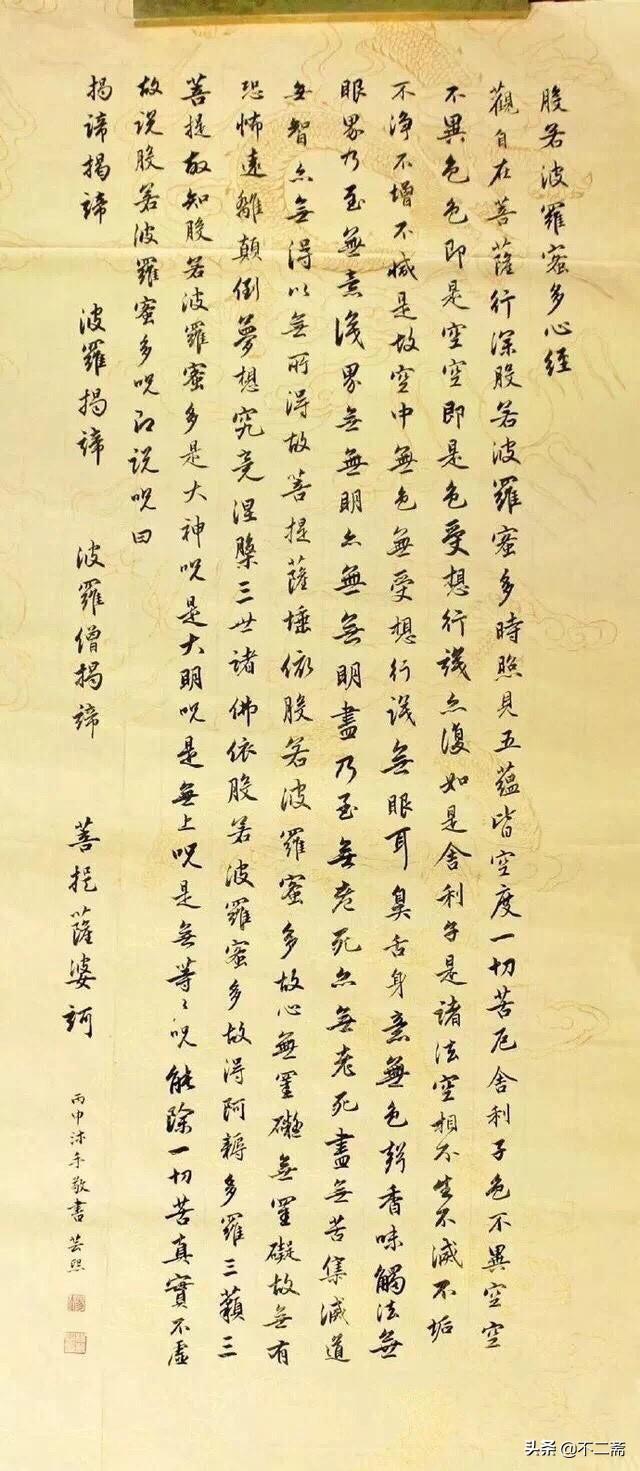 般若波羅蜜多心經
觀自在菩薩行深般若波羅蜜多時照見五蘊皆空度一切苦厄舍利子色不異空空
不異色色即是空空即是色受想行識亦復如是舍利子是諸法空相不生不滅不垢
不淨不增不減是故空中無色無受想行識無眼耳鼻舌身意無色聲香味觸法無
眼界乃至無意識界無無明亦無無明盡乃至無老死亦無老死盡無苦集滅道
無智亦無得以無所得故菩提薩埵依般若波羅蜜多故心無罣礙無罣礙故無有
恐怖遠離顛倒夢想究竟涅槃三世諸佛依般若波羅蜜多故得阿耨多羅三藐三
菩提故知般若波羅蜜多是大神咒是大明咒是無上咒是無等々咒能除一切苦真實不虛
故說般若波羅蜜多咒即說咒曰
揭諦揭諦 波羅揭諦 波羅僧揭諦 菩提薩婆訶
丙申沐手敬書芸熙
头条@不二斋